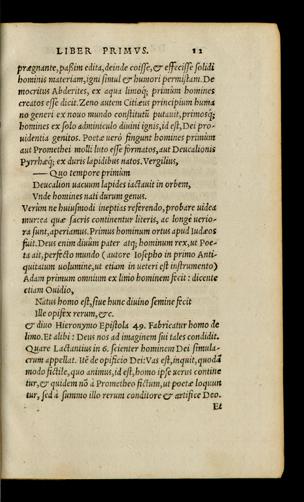 LIBER PRIMVS. 12
prægnante, paßim edita, deinde coisse, & effecisse solidi
hominis materiam, igni simul & humori permistam. De
mocritus Abderites, ex aqua limoq; primùm homines
creatos esse dicit. Zeno autem Citiæus principium huma
no generi ex nouo mundo constitutū putauit, primosq;
homines ex solo adminiculo diuini ignis, id est, Dei pro-
uidentia genitos. Poetæ uerò fingunt homines primùm
aut Promethei molli luto esse formatos, aut Deucalionis
Pyrrhæq; ex duris lapidibus natos. Vergilius,
— Quo tempore primùm
Deucalion uacuum lapides iactauit in orbem,
Vnde homines nati durum genus.
Verùm ne huiusmodi ineptias referendo, probare uidea
mur: ea quæ sacris continentur literis, ac longè uerio-
ra sunt, aperiamus. Primus hominum ortus apud Iudæos
fuit. Deus enim diuûm pater atq; hominum rex, ut Poe-
ta ait, perfecto mundo (autore Iosepho in primo Anti-
quitatum uolumine, ut etiam in ueteri est instrumento)
Adam primum omnium ex limo hominem fecit: dicente
etiam Ouidio,
Natus homo est, siue hunc diuino semine fecit
Ille opifex rerum, &c.
& diuo Hieronymo Epistola 49. Fabricatur homo de
limo. Et alibi: Deus nos ad imaginem sui tales condidit.
Quare Lactantius in 6. scienter hominem Dei simula-
crum appellat. Itē de opificio Dei: Vas est, inquit, quodā
modo fictile, quo animus, id est, homo ipse uerus contine
tur, & quidem nō à Prometheo fictum, ut poetæ loquun
tur, sed à summo illo rerum conditore & artifice Deo.
Et